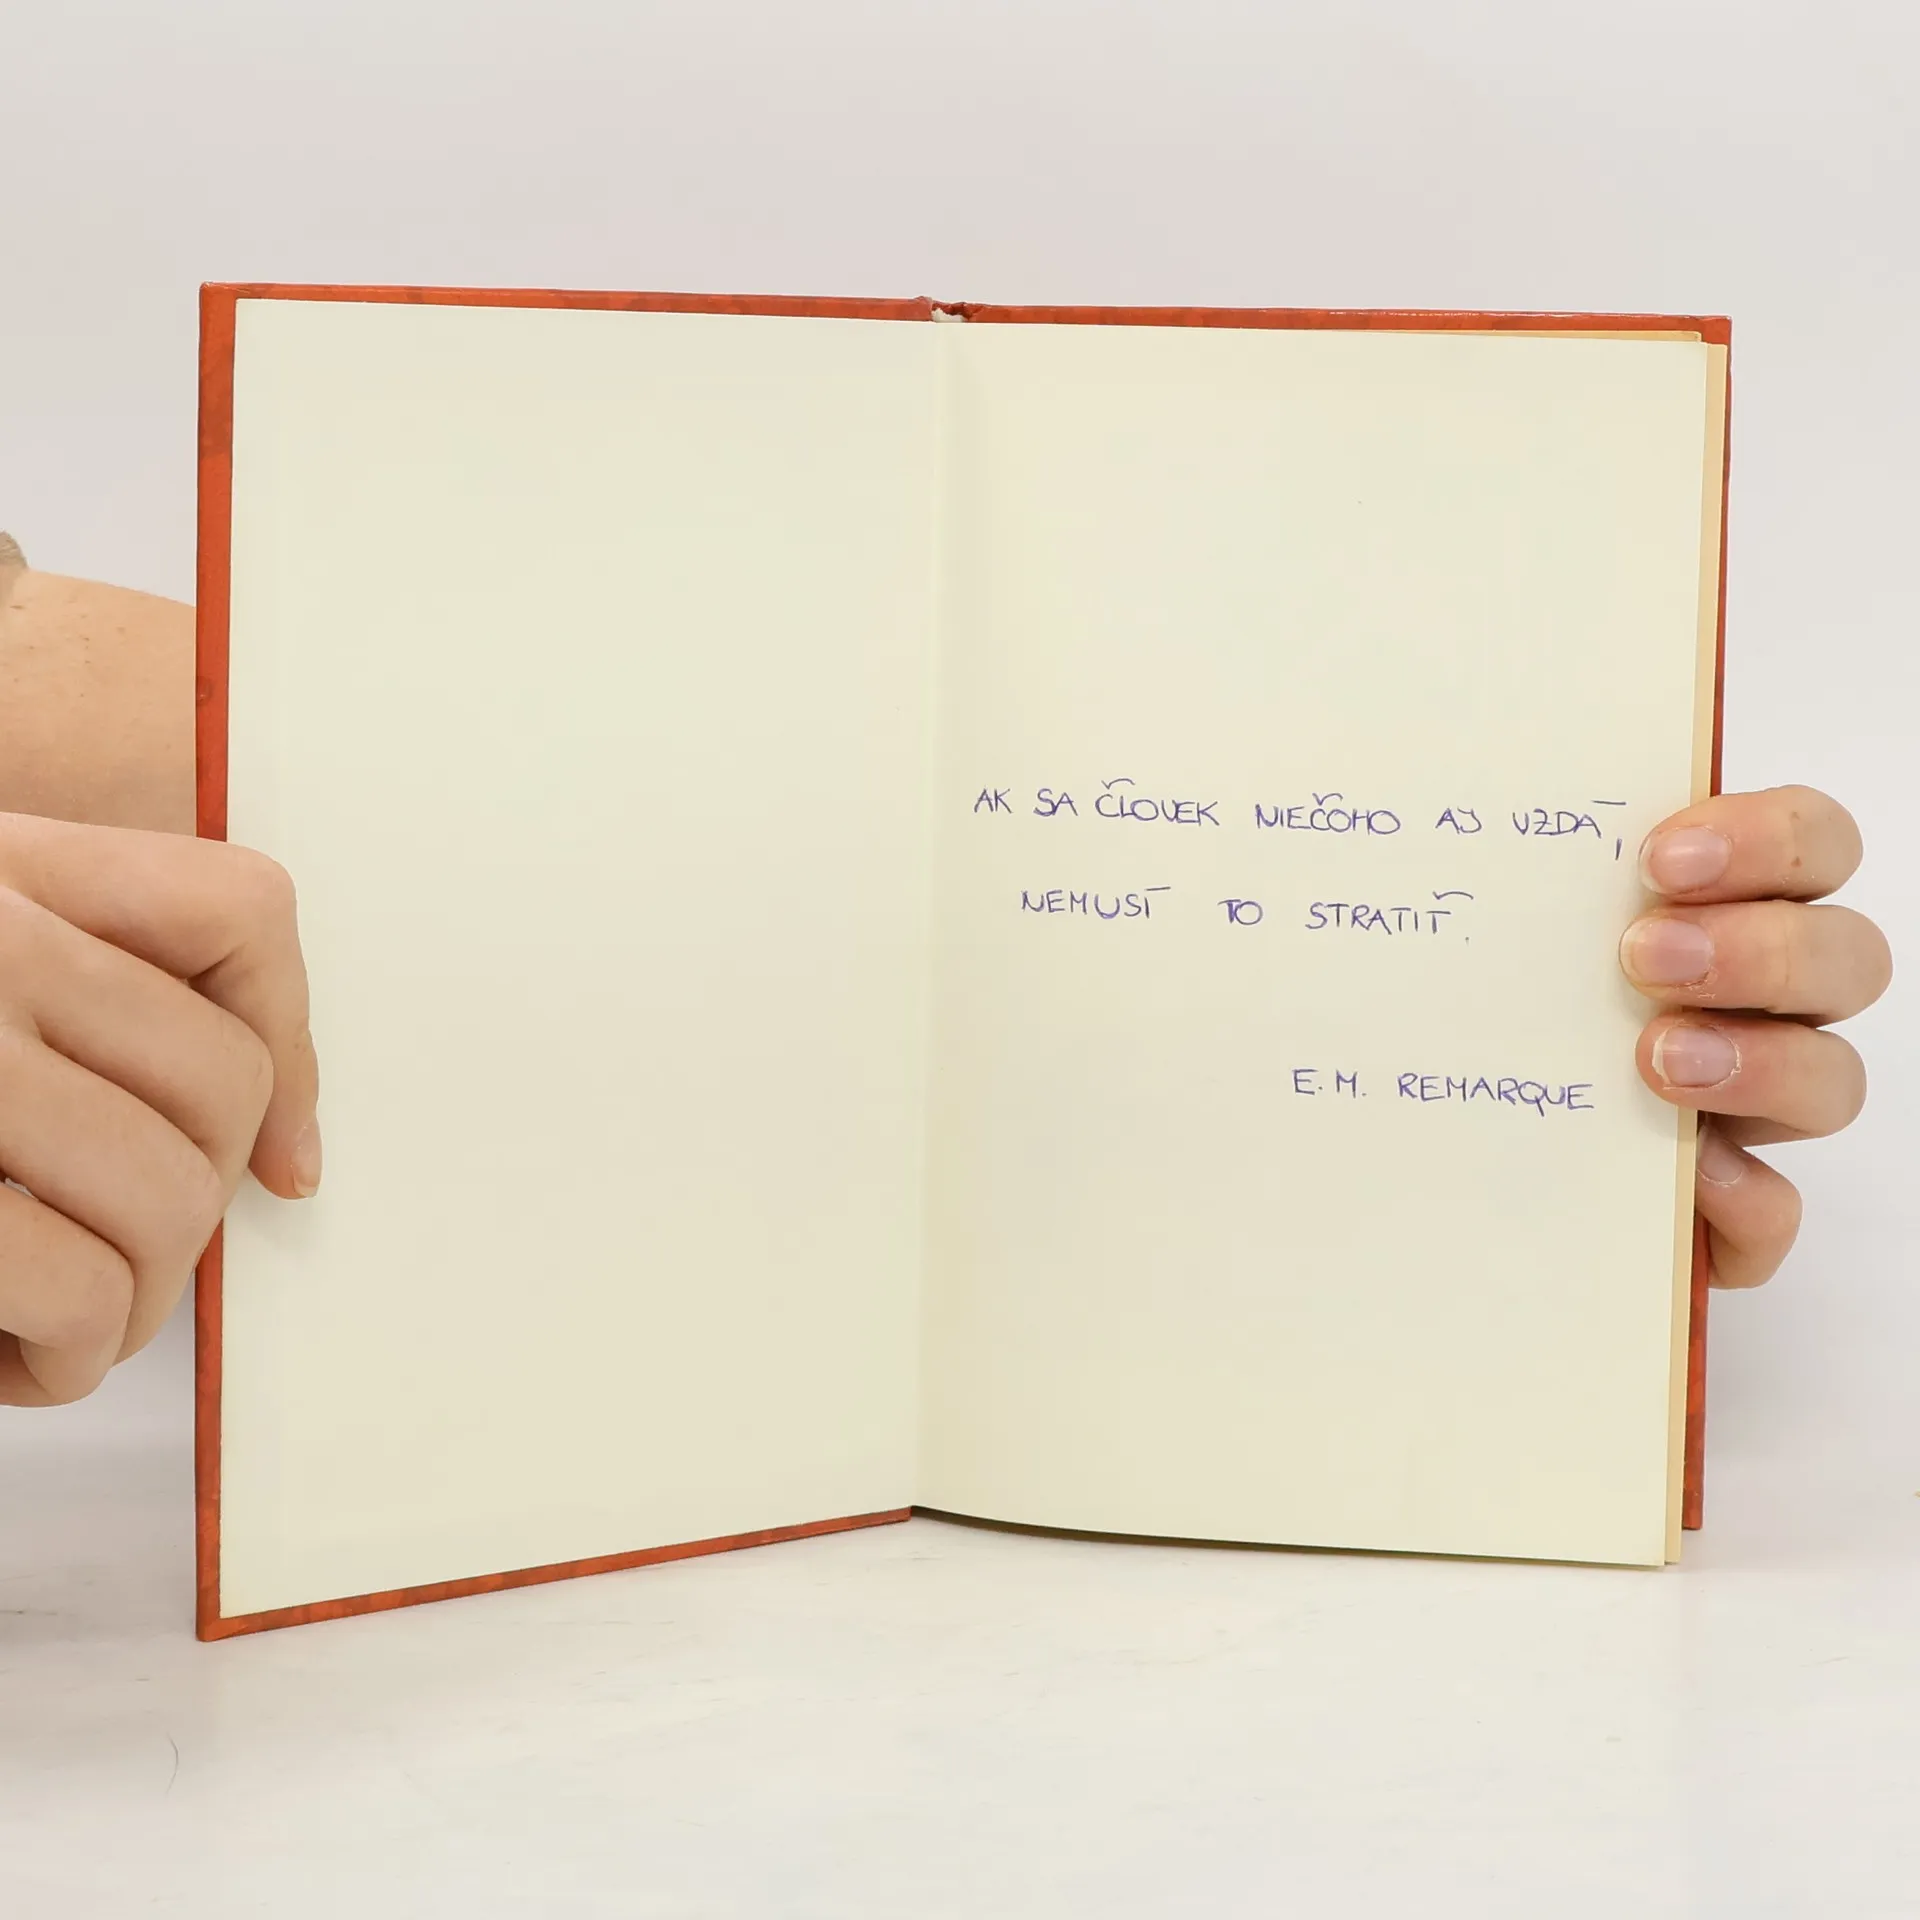 AK SA ČLOVEK NIEČOHO AJ VZDÁ,
NEMUSÍ TO STRATIŤ.
E. M. REMARQUE